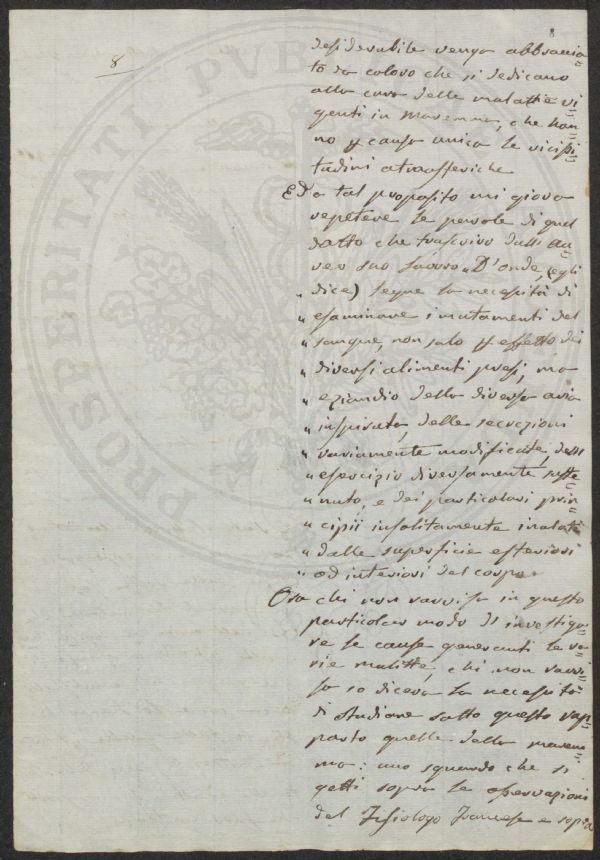 8
8
desiderabile venga abbraccia=
to da coloro che si dedicano
alla cura delle malattie vi=
genti in Maremma, che han=
no p causa unica le vicissi=
tudini atmosferiche
E da tal proposito mi giova
repetere le parole di quel
dotto che trascrivo dall' au=
reo suo lavoro „ D'onde, (egli
„ dice) segue la necessità di
„ esaminare i mutamenti del
„ sangue, non solo p effetto dei
„ diversi alimenti presi, ma
„ eziandio della diversa aria
„ inspirata, delle secrezioni
„ variamente modificate, dell'
„ esercizio diversamente soste=
„ nuto, e dei particolari prin=
„ cipii insolitamente inalati
„ dalle superficie esteriori
„ od interiori del corpo.
Ora chi non ravvisa in questo
particolare modo d'investiga=
re le cause generanti le va=
rie malattie; chi non ravvi=
sa io diceva la necessità
di studiare sotto questo rap=
porto quelle della marem=
ma: uno sguardo che si
getti sopra le osservazioni
del Fisiologo Francese e sopra
PROSPERITATI PUB